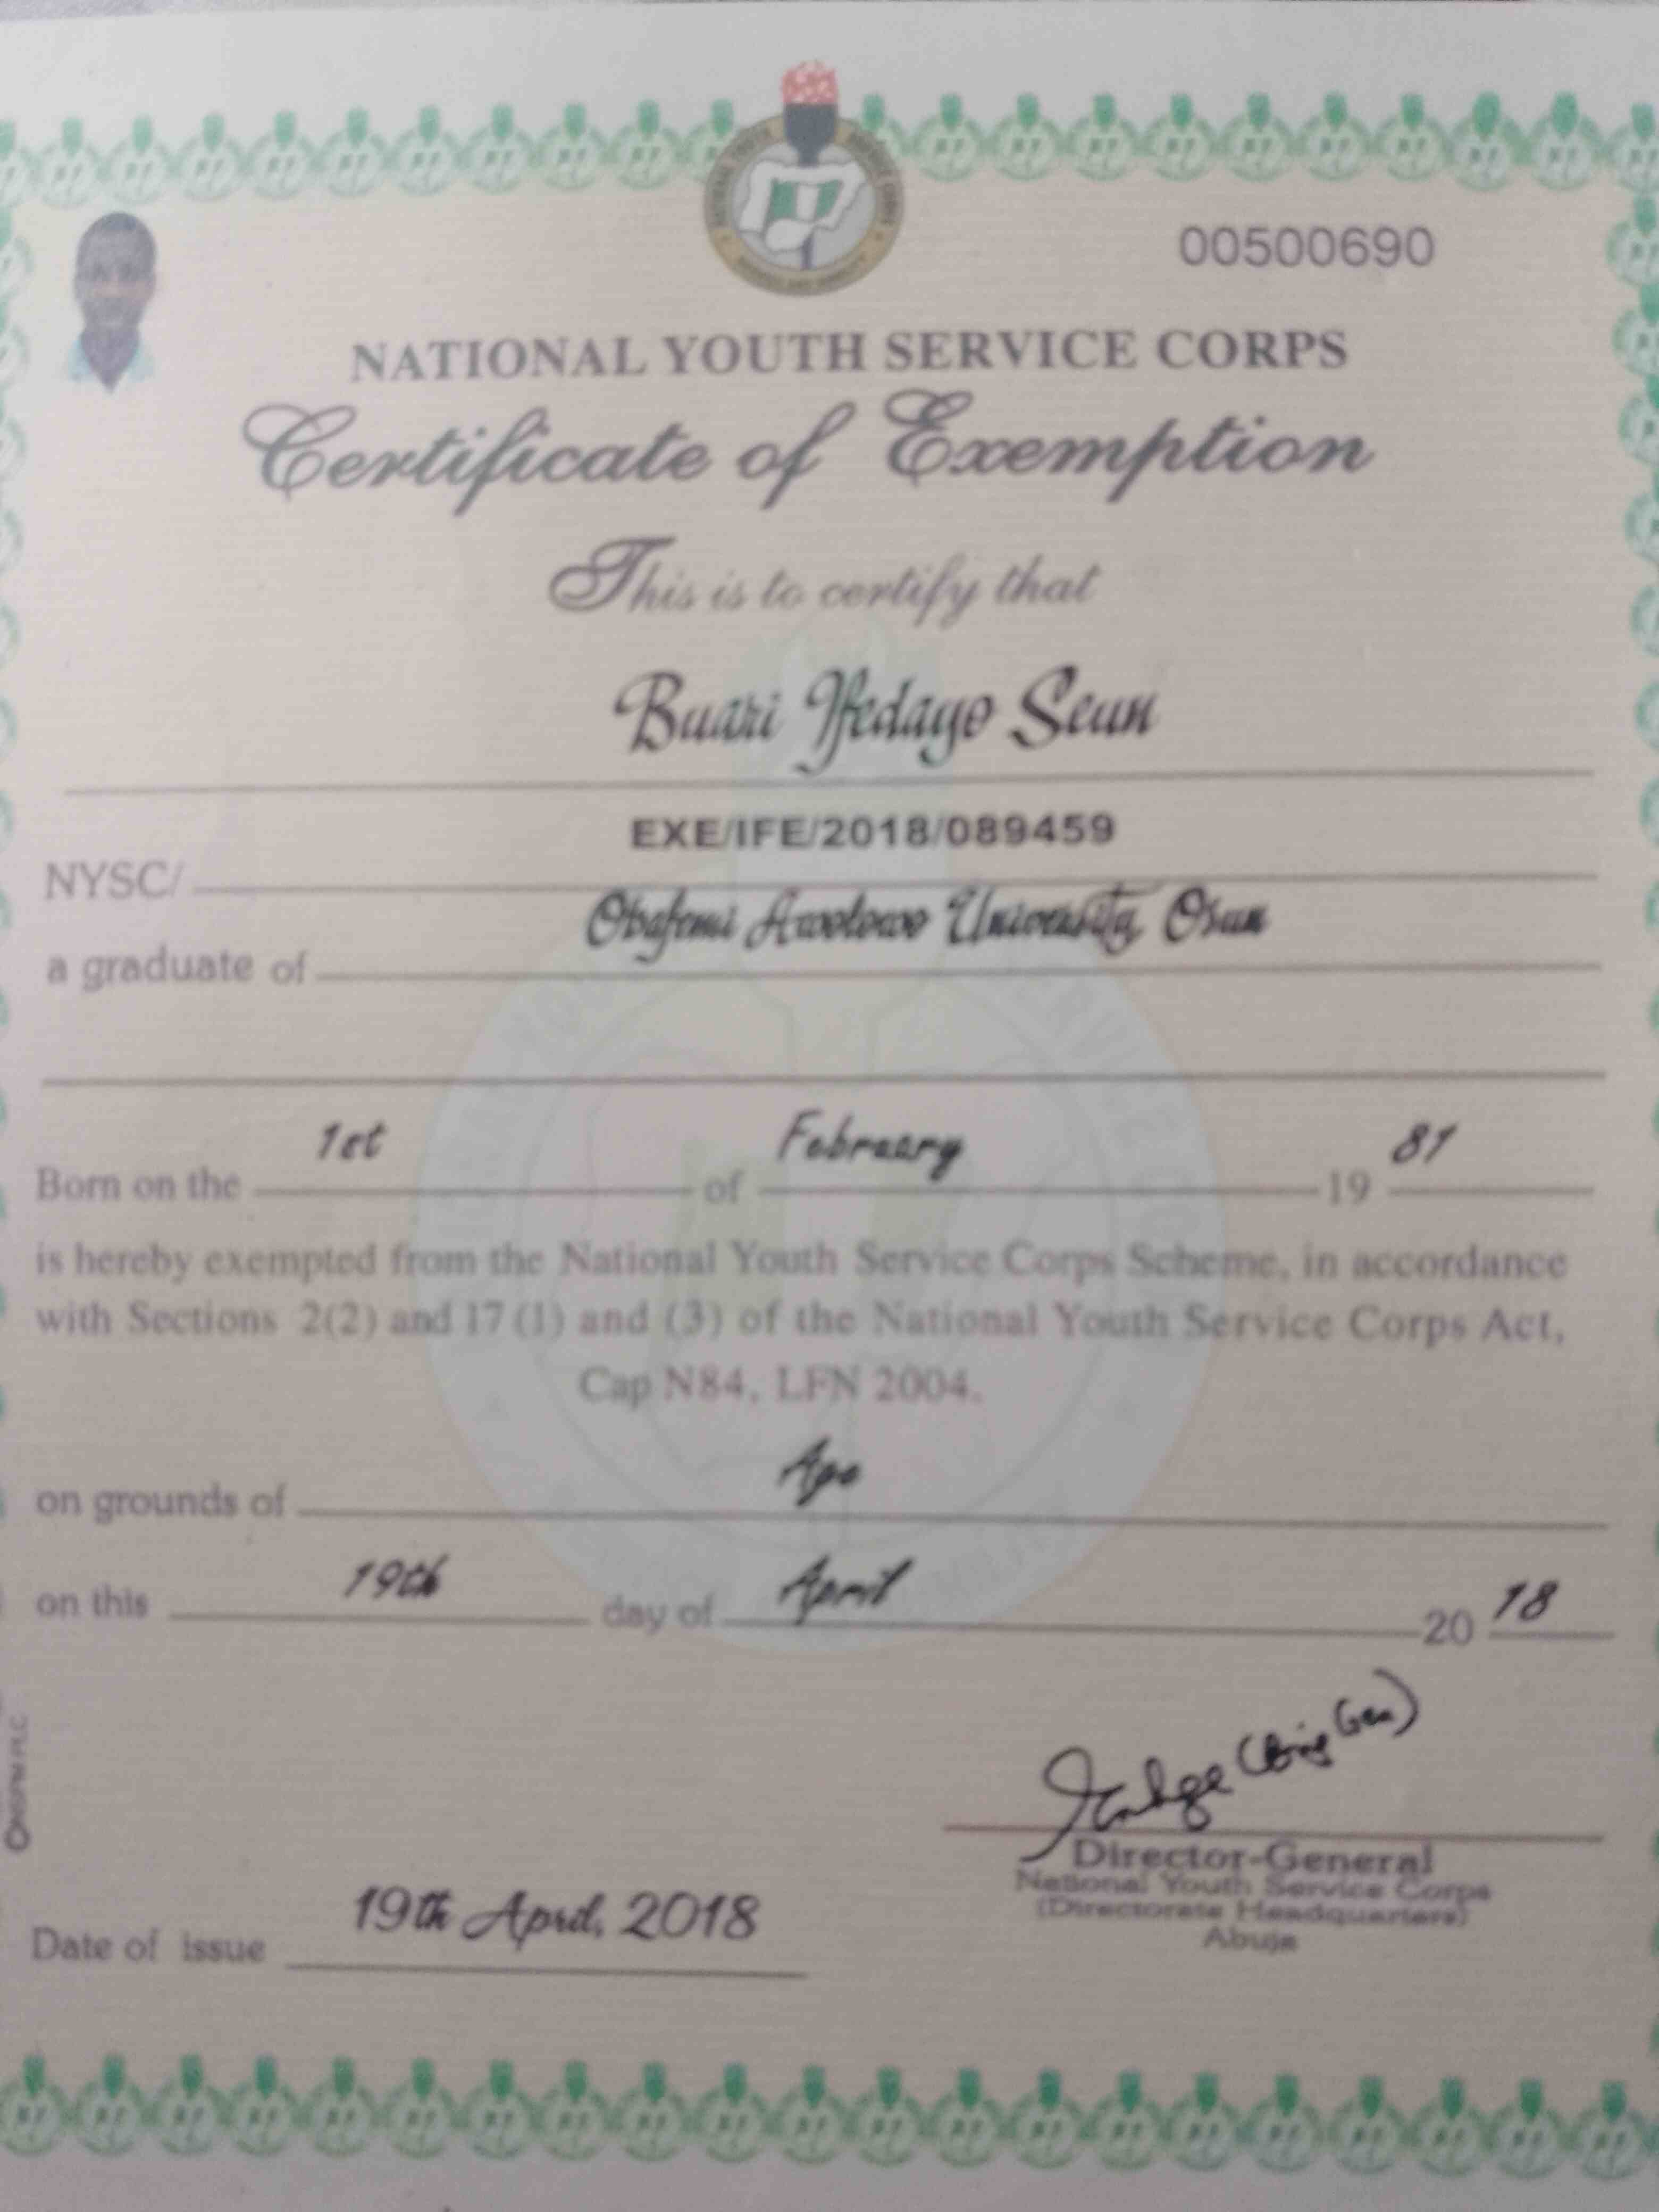 00500690
NATIONAL YOUTH SERVICE CORPS
Certificate of Exemption
This is to certify that
Buari Ifedayo Seun
EXE/IFE/2018/089459
NYSC/
Obafemi Awolowo University, Osun
a graduate of
1st February 81
Born on the of 19
is hereby exempted from the National Youth Service Corps Scheme, in accordance
with Sections 2(2) and 17 (1) and (3) of the National Youth Service Corps Act,
Cap N84, LFN 2004.
Age
on grounds of
19th April 18
on this day of 20
(Brig Gen)
Director-General
National Youth Service Corps
(Directorate Headquarters)
Abuja
19th April, 2018
Date of issue